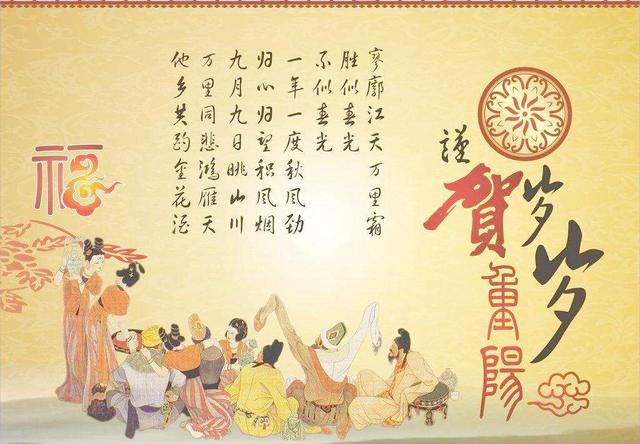 謹
賀
岁岁
重陽
寥廓江天万里霜
胜似春光
不似春光
一年一度秋风劲
归心归望积风烟
九月九日眺山川
万里同悲鸿雁天
他乡共酌金花酒
福